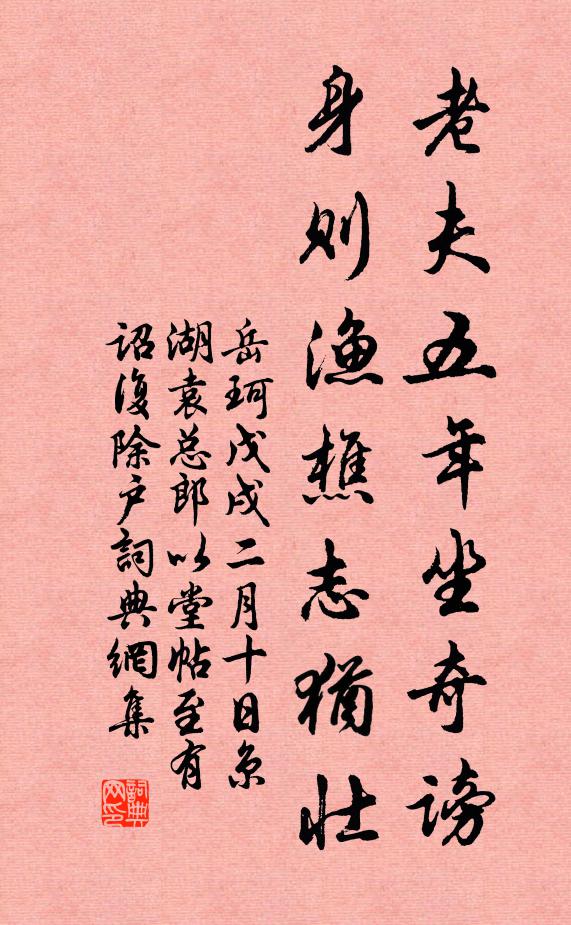 老夫五年坐奇谤
身则渔樵志犹壮
岳珂戊戌二月十日京
湖袁总郎以堂帖至有
诏复除户詞典網集
詞典网印